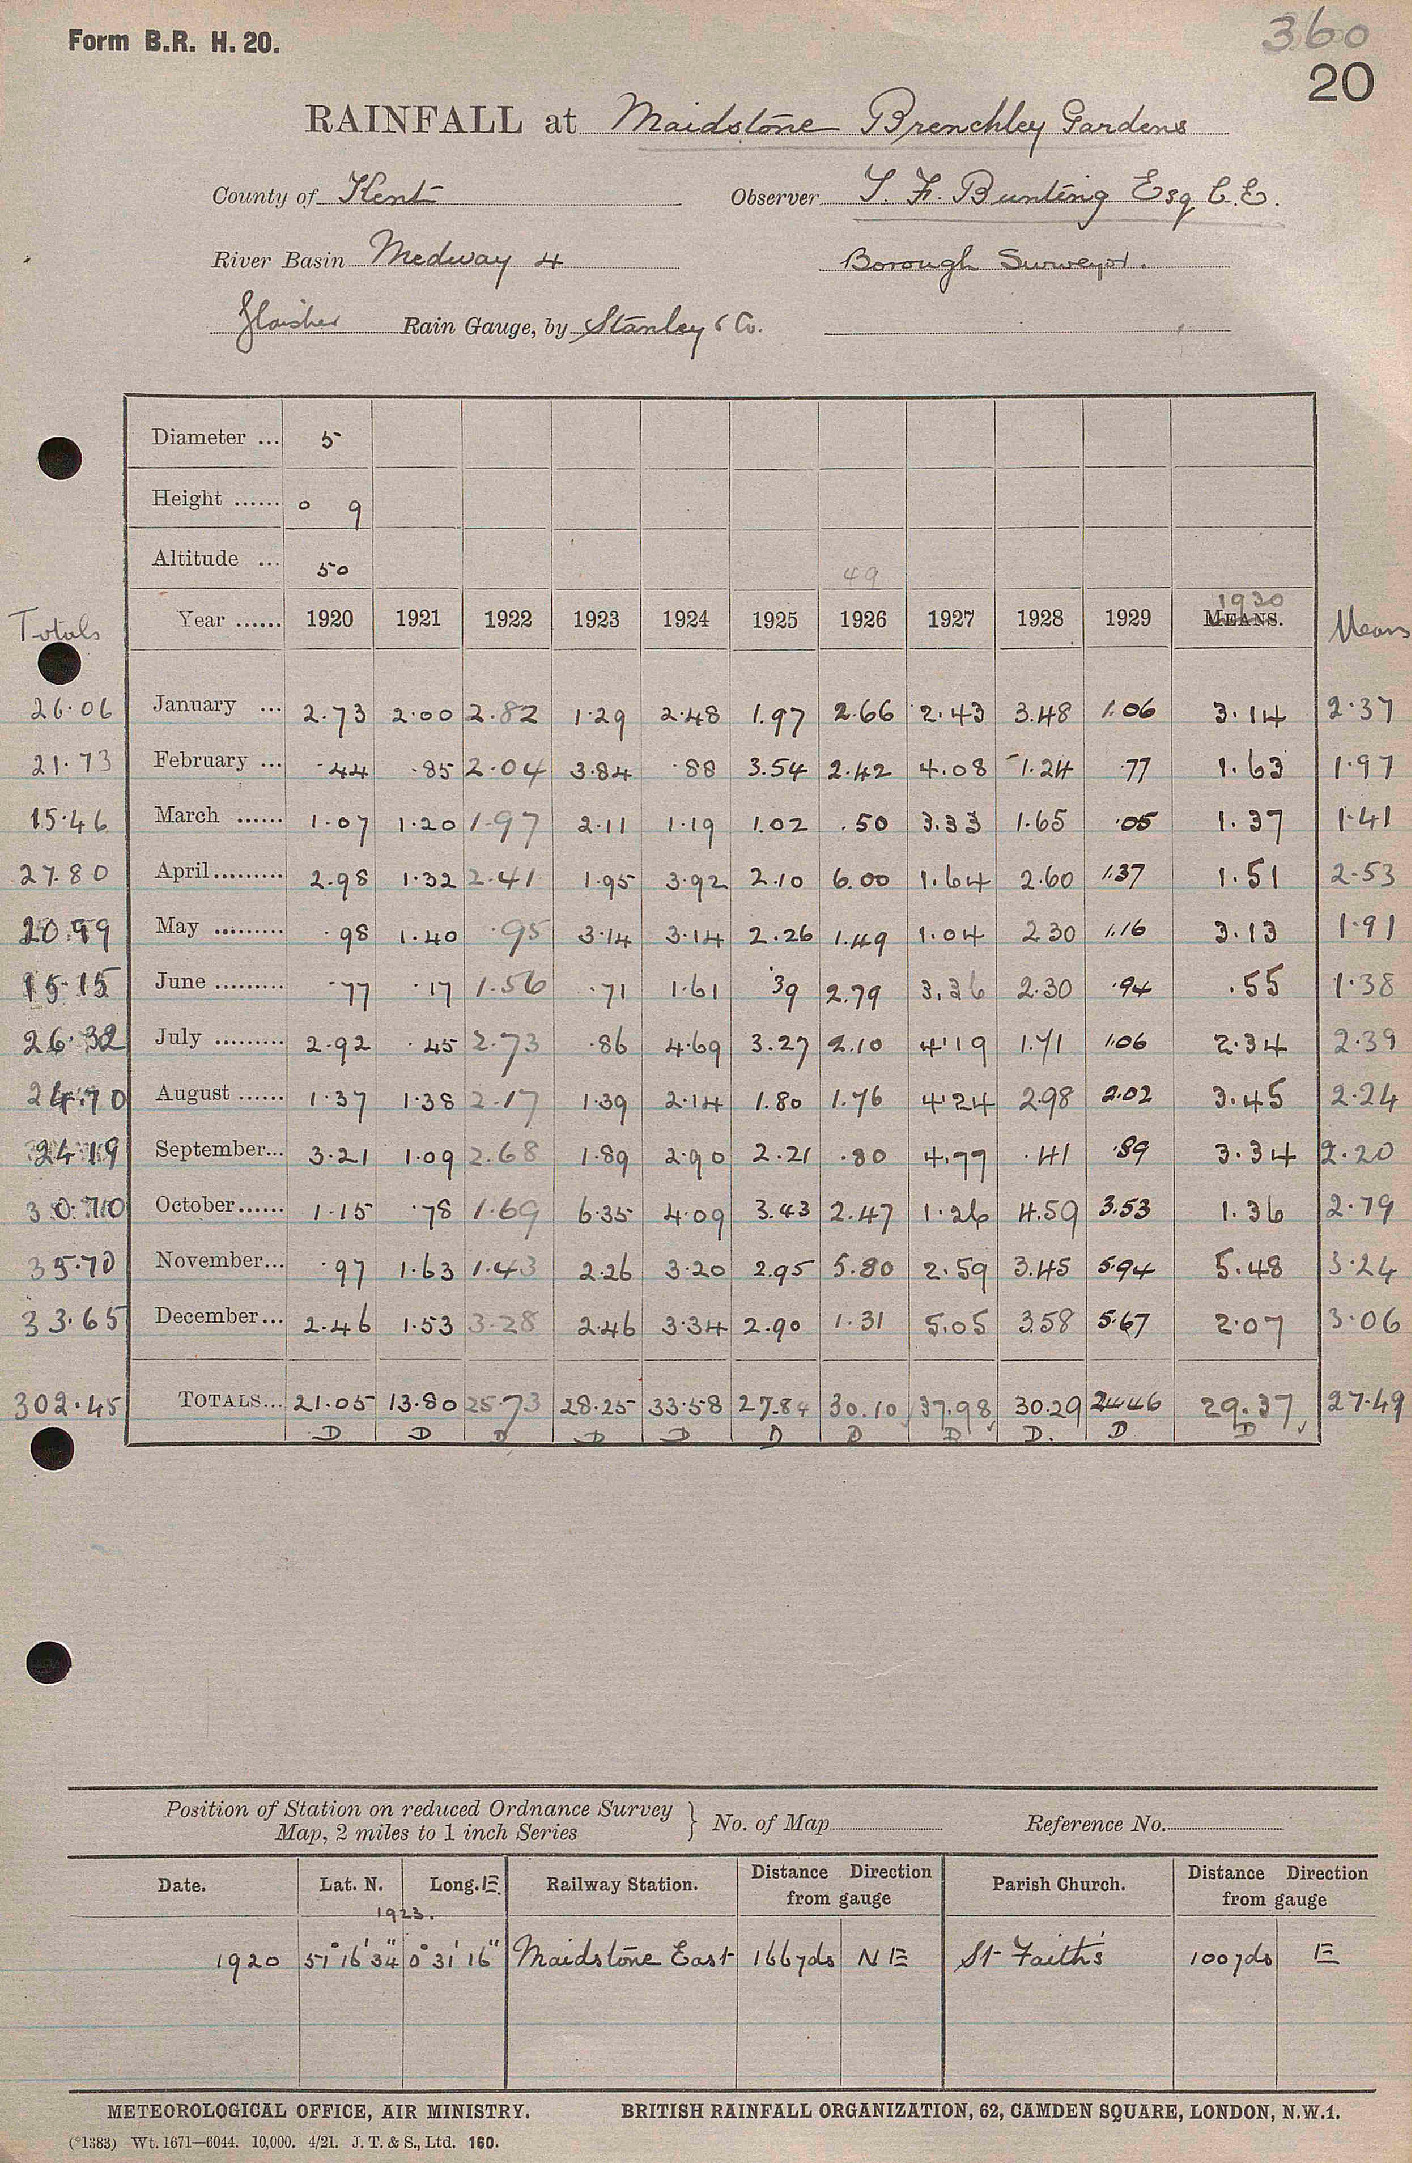 Form B.R. H. 20.
360
20
RAINFALL at Maidstone Brenchley Gardens
County of Kent Observer T. F. Bunting Esq C.E.
River Basin Medway 4 Borough Surveyor.
Glaisher Rain Gauge, by Stanley & Co.
Diameter ... 5
Height ...... 0 9
Altitude ... 50 49
1930
Totals Year ...... 1920 1921 1922 1923 1924 1925 1926 1927 1928 1929 MEANS. Means
26.06 January ... 2.73 2.00 2.82 1.29 2.48 1.97 2.66 2.43 3.48 1.06 3.14 2.37
21.73 February ... .44 .85 2.04 3.84 .88 3.54 2.42 4.08 1.24 .77 1.63 1.97
15.46 March ...... 1.07 1.20 1.97 2.11 1.19 1.02 .50 3.33 1.65 .05 1.37 1.41
27.80 April......... 2.98 1.32 2.41 1.95 3.92 2.10 6.00 1.64 2.60 1.37 1.51 2.53
20.99 May ......... .98 1.40 .95 3.14 3.14 2.26 1.49 1.04 2.30 1.16 3.13 1.91
15.15 June ......... .77 .17 1.56 .71 1.61 .39 2.79 3.36 2.30 .94 .55 1.38
26.32 July ......... 2.92 .45 2.73 .86 4.69 3.27 2.10 4.19 1.71 1.06 2.34 2.39
24.70 August ...... 1.37 1.38 2.17 1.39 2.14 1.80 1.76 4.24 2.98 2.02 3.45 2.24
24.19 September... 3.21 1.09 2.68 1.89 2.90 2.21 .80 4.77 .41 .89 3.34 2.20
30.70 October...... 1.15 .78 1.69 6.35 4.09 3.43 2.47 1.26 4.59 3.53 1.36 2.79
35.70 November... .97 1.63 1.43 2.26 3.20 2.95 5.80 2.59 3.45 5.94 5.48 3.24
33.65 December... 2.46 1.53 3.28 2.46 3.34 2.90 1.31 5.05 3.58 5.67 2.07 3.06
302.45 TOTALS... 21.05 13.80 25.73 28.25 33.58 27.84 30.10 37.98 30.29 24.46 29.37 27.49
D D D D D D D D D. D D
Position of Station on reduced Ordnance Survey
Map, 2 miles to 1 inch Series } No. of Map Reference No.
Date. Lat. N. Long. E. Railway Station. Distance Direction from gauge Parish Church. Distance Direction from gauge
1923.
1920 51° 16' 34" 0° 31' 16" Maidstone East 166 yds N E St Faith's 100 yds E
METEOROLOGICAL OFFICE, AIR MINISTRY. BRITISH RAINFALL ORGANIZATION, 62, CAMDEN SQUARE, LONDON, N.W.1.
(*1383) Wt. 1671—6044. 10,000. 4/21. J. T. & S., Ltd. 160.